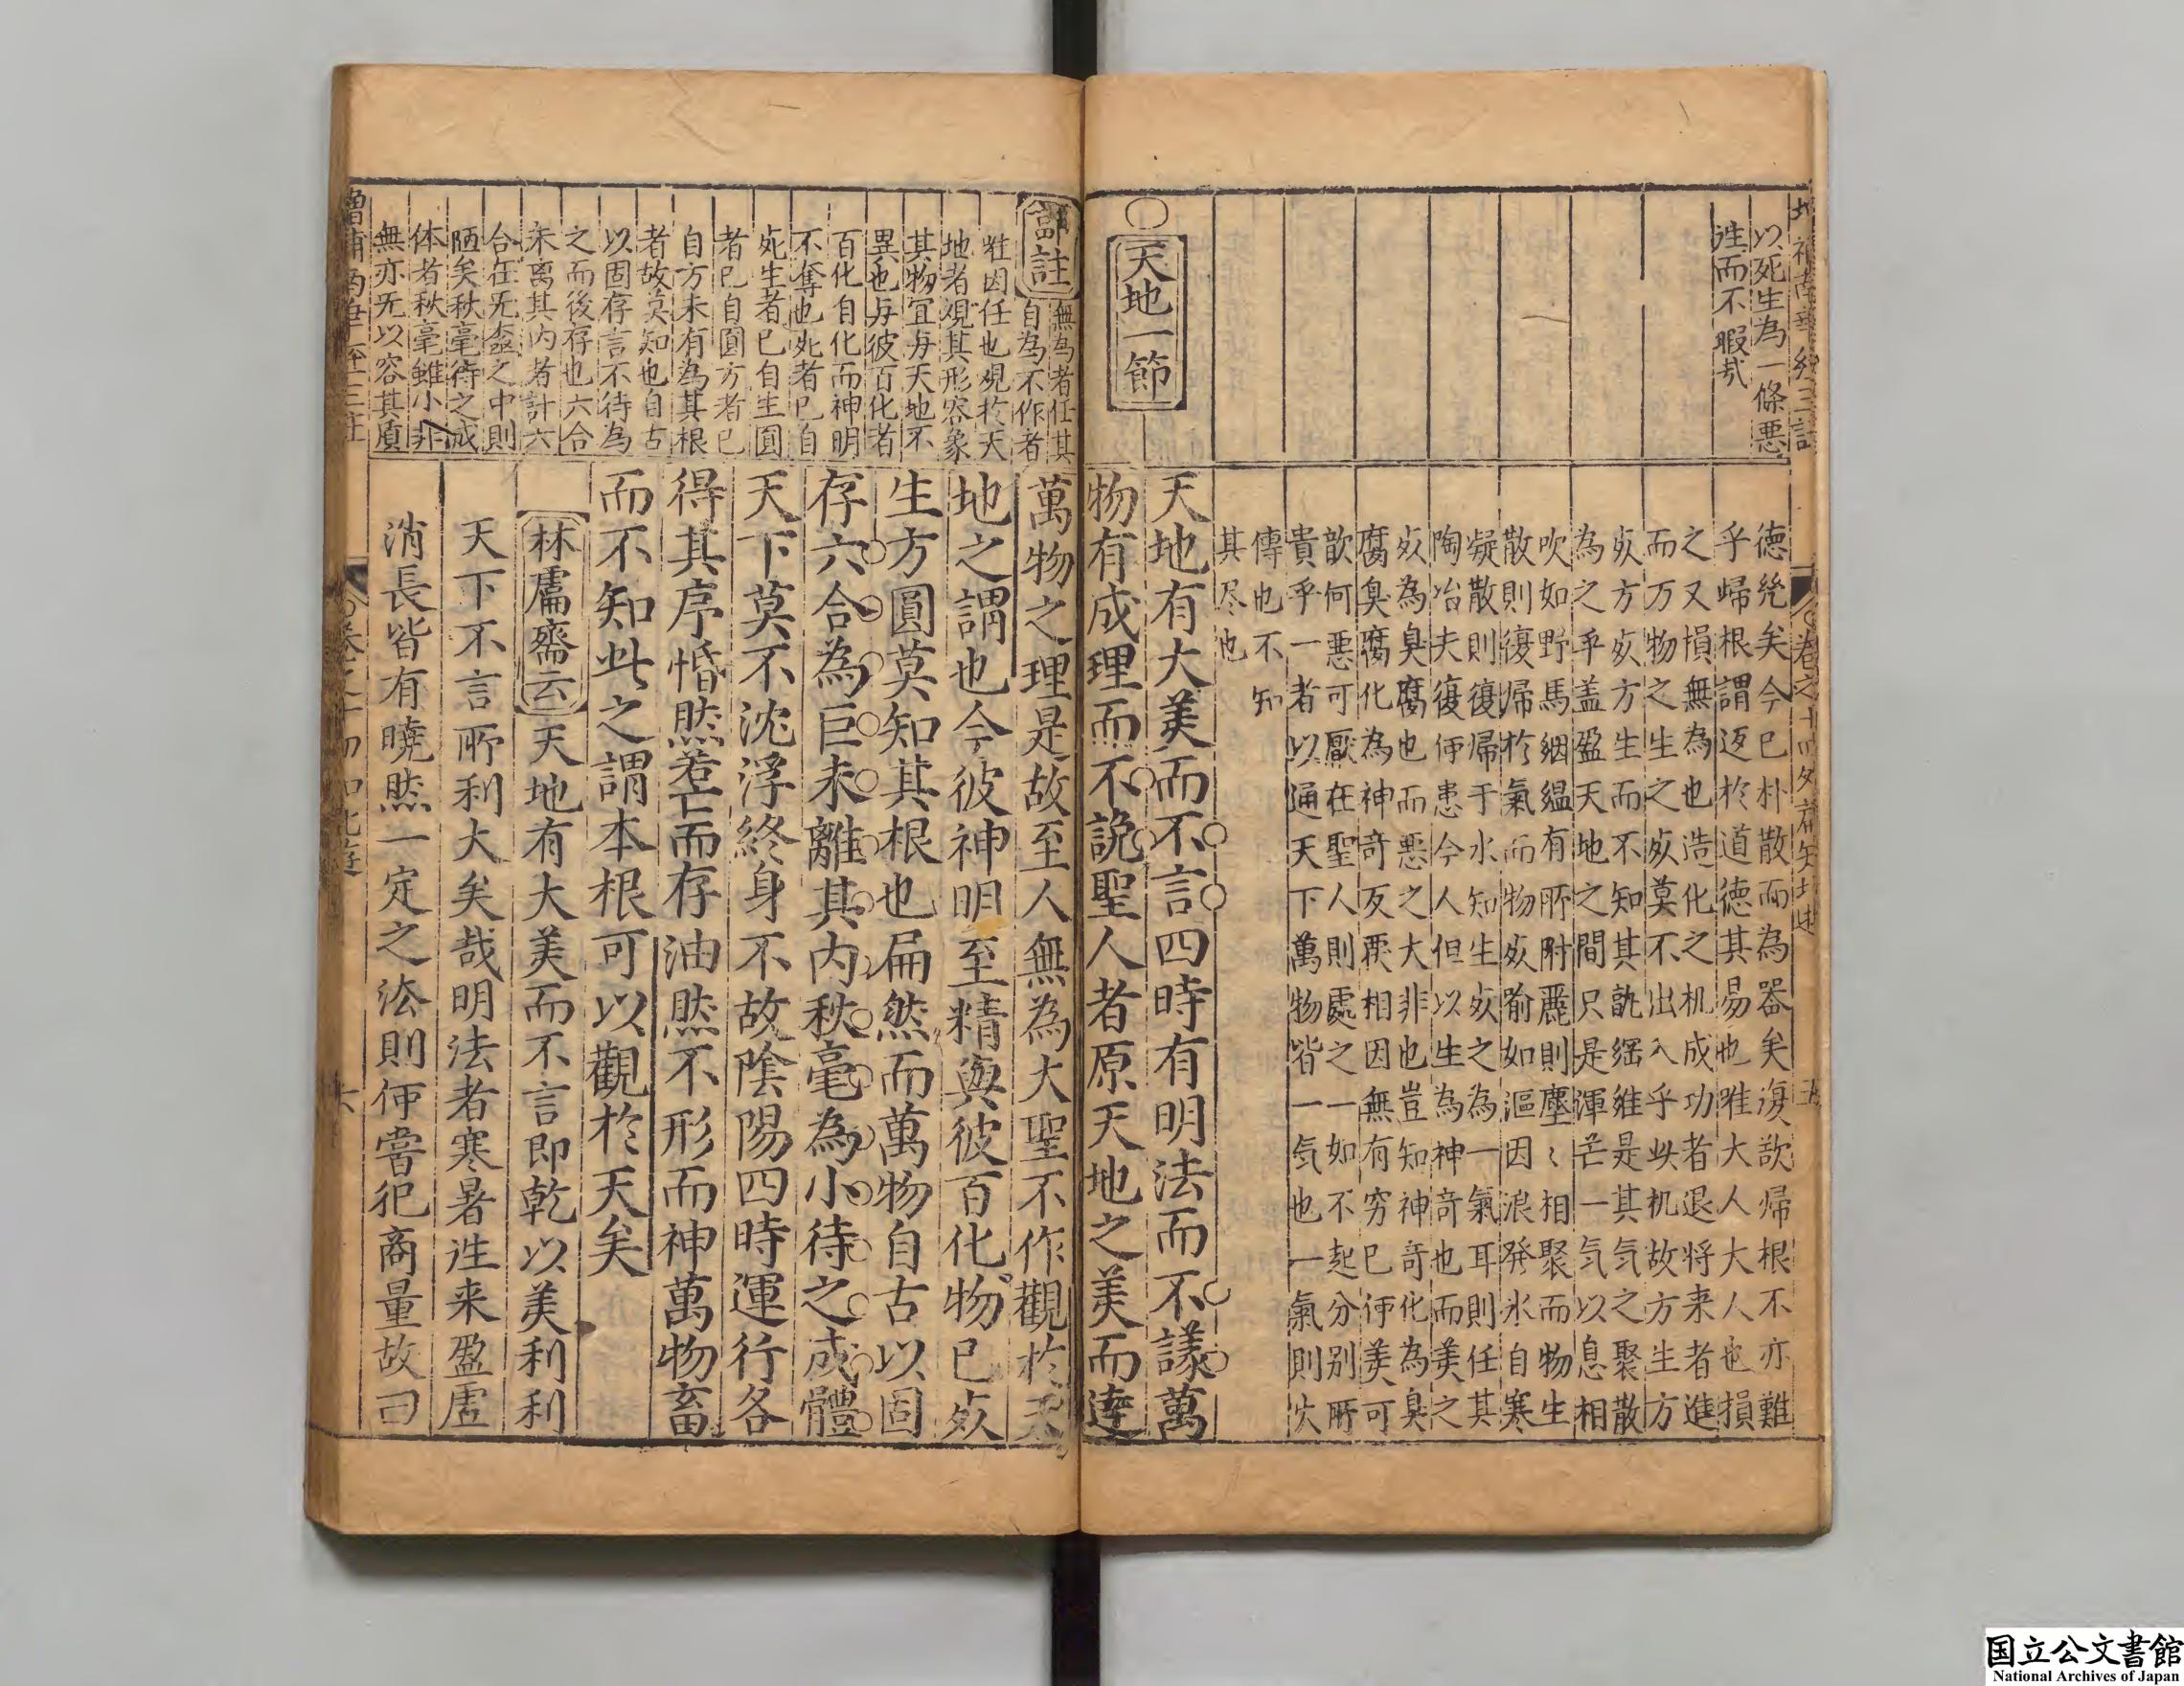 以死生為一條惡
徃而不暇㢤
德㡬矣今已朴散而為器矣復歆歸根不亦難
乎歸根謂返於道德其易也唯大人大人也損
之又損無為也造化之机成功者退将来者進
而万物之生之死莫不出入乎此机故方生方
死方死方生而不知其𫍙繇雖是其其气之聚散
為之乎盖盈天地之間只是渾芒一气以息相
吹如野馬絪縕有所附麗則塵〻相聚而物生
散則復歸於氣而物死猶如漚因浪發氷自寒
凝散則復歸于水知生死之為一氣耳則任其
陶冶夫復何患今人但以生為神奇也而美之
死為臭腐也而惡之大非也豈知神奇化為臭
腐臭腐化為神奇反覆相因無有穷已何美可
歆何惡可厭在聖人則處之一如不起分别所
貴乎一者以通天下萬物皆一気也一氣則
傳也不知
其尽也
○天地一節
天地有大美而不言四時有明法而不議萬
物有成理而不說聖人者原天地之美而達
註
無為者任其
自為不作者
唯因任也观於天
地者观其形容象
其物宜与天地不
異也与彼百化者
百化自化而神明
不奪也死者已自
死生者已自生圓
者已自圓方者已
自方未有為其根
者故莫知也自古
以固存言不待為
之而後存也六合
未离其内者計六
合在无盔之中則
陋矣秋毫待之成
体者秋毫雖小非
無亦无以容其質
萬物之理是故至人無為大聖不作觀於天
地之謂也今彼神明至精與彼百化物已死
生方圓莫知其根也扁然而萬物自古以固
存六合為巨未離其内秋毫為小待之成體
天下莫不沈浮終身不故陰陽四時運行各
得其序惛然若亡而存油然不形而神萬物畜
而不知此之謂本根可以觀於天矣
林鬳齋云天地有大美而不言即乾以美利利
天下不言所利大矣哉明法者寒暑徃来盈虚
消長皆有曉然一定之法則何嘗犯商量故曰
国立公文書館
National Archives of Japan